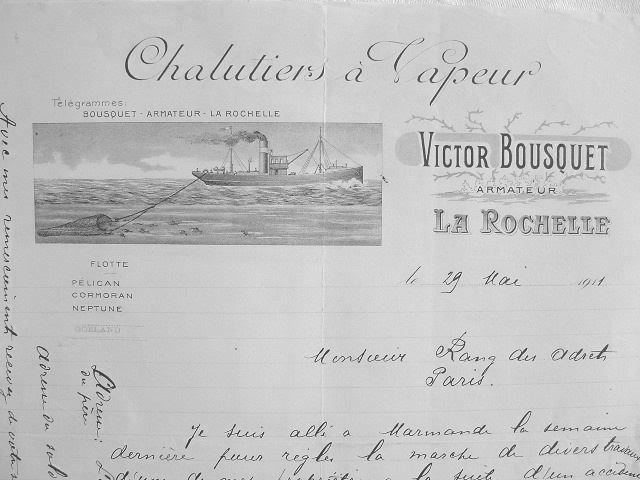 Chalutiers à Vapeur
Télégrammes:
BOUSQUET - ARMATEUR - LA ROCHELLE
VICTOR BOUSQUET
ARMATEUR
LA ROCHELLE
FLOTTE
PÉLICAN
CORMORAN
NEPTUNE
GOËLAND
le 29 Mai 1911
Monsieur Rang des Adrets
Paris.
Je suis allé a Marmande la semaine
dernière pour régler la marche de divers travaux
a la suite d'un accident
Avec mes remerciements recevez
Adresse du
Adresse
du père